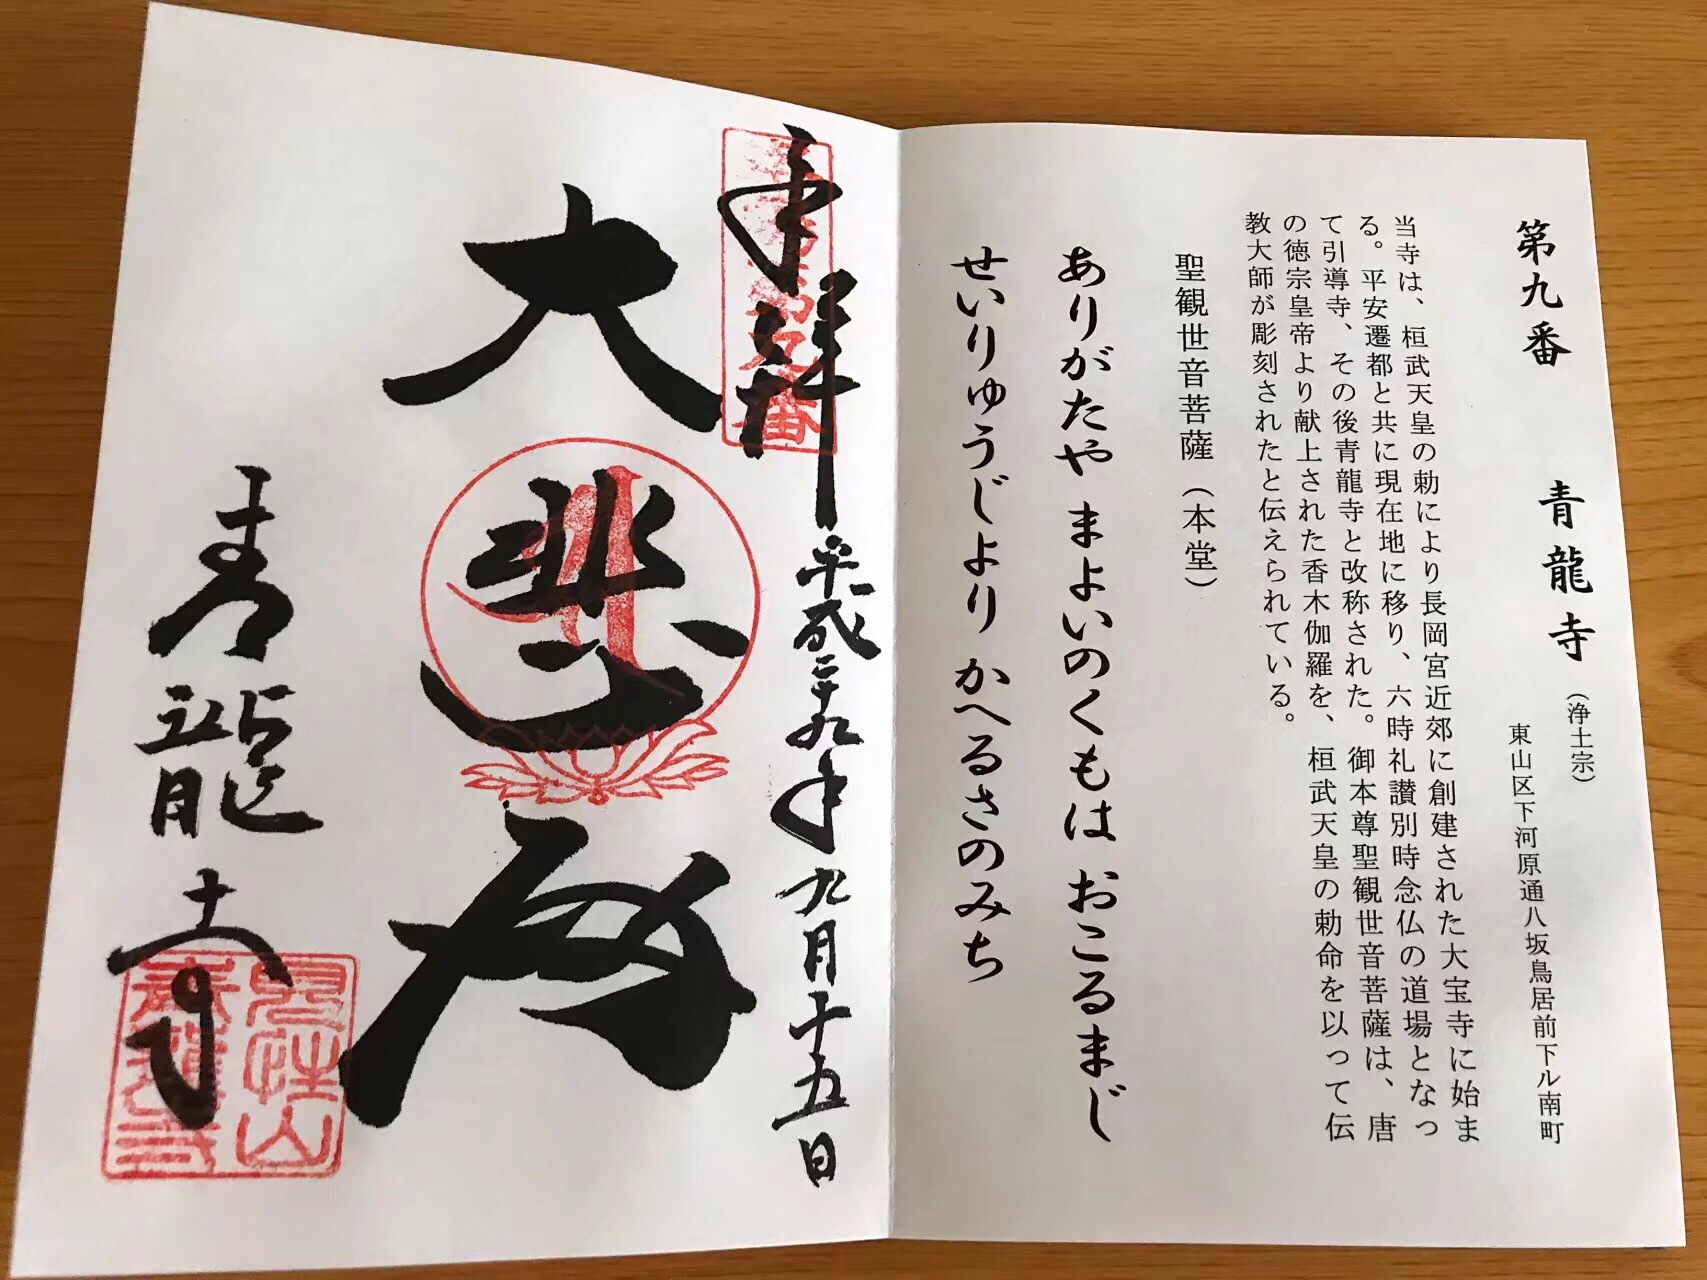 第九番 青龍寺（浄土宗）
東山区下河原通八坂鳥居前下ル南町
当寺は、桓武天皇の勅により長岡宮近郊に創建された大宝寺に始ま
る。平安遷都と共に現在地に移り、六時礼讃別時念仏の道場となっ
て引導寺、その後青龍寺と改称された。御本尊聖観世音菩薩は、唐
の徳宗皇帝より献上された香木伽羅を、桓武天皇の勅命を以って伝
教大師が彫刻されたと伝えられている。
聖観世音菩薩（本堂）
ありがたや まよいのくもは おこるまじ
せいりゅうじより かへるさのみち
奉拝 平成二十九年九月十五日
大悲殿
青龍寺
見性山
青龍寺